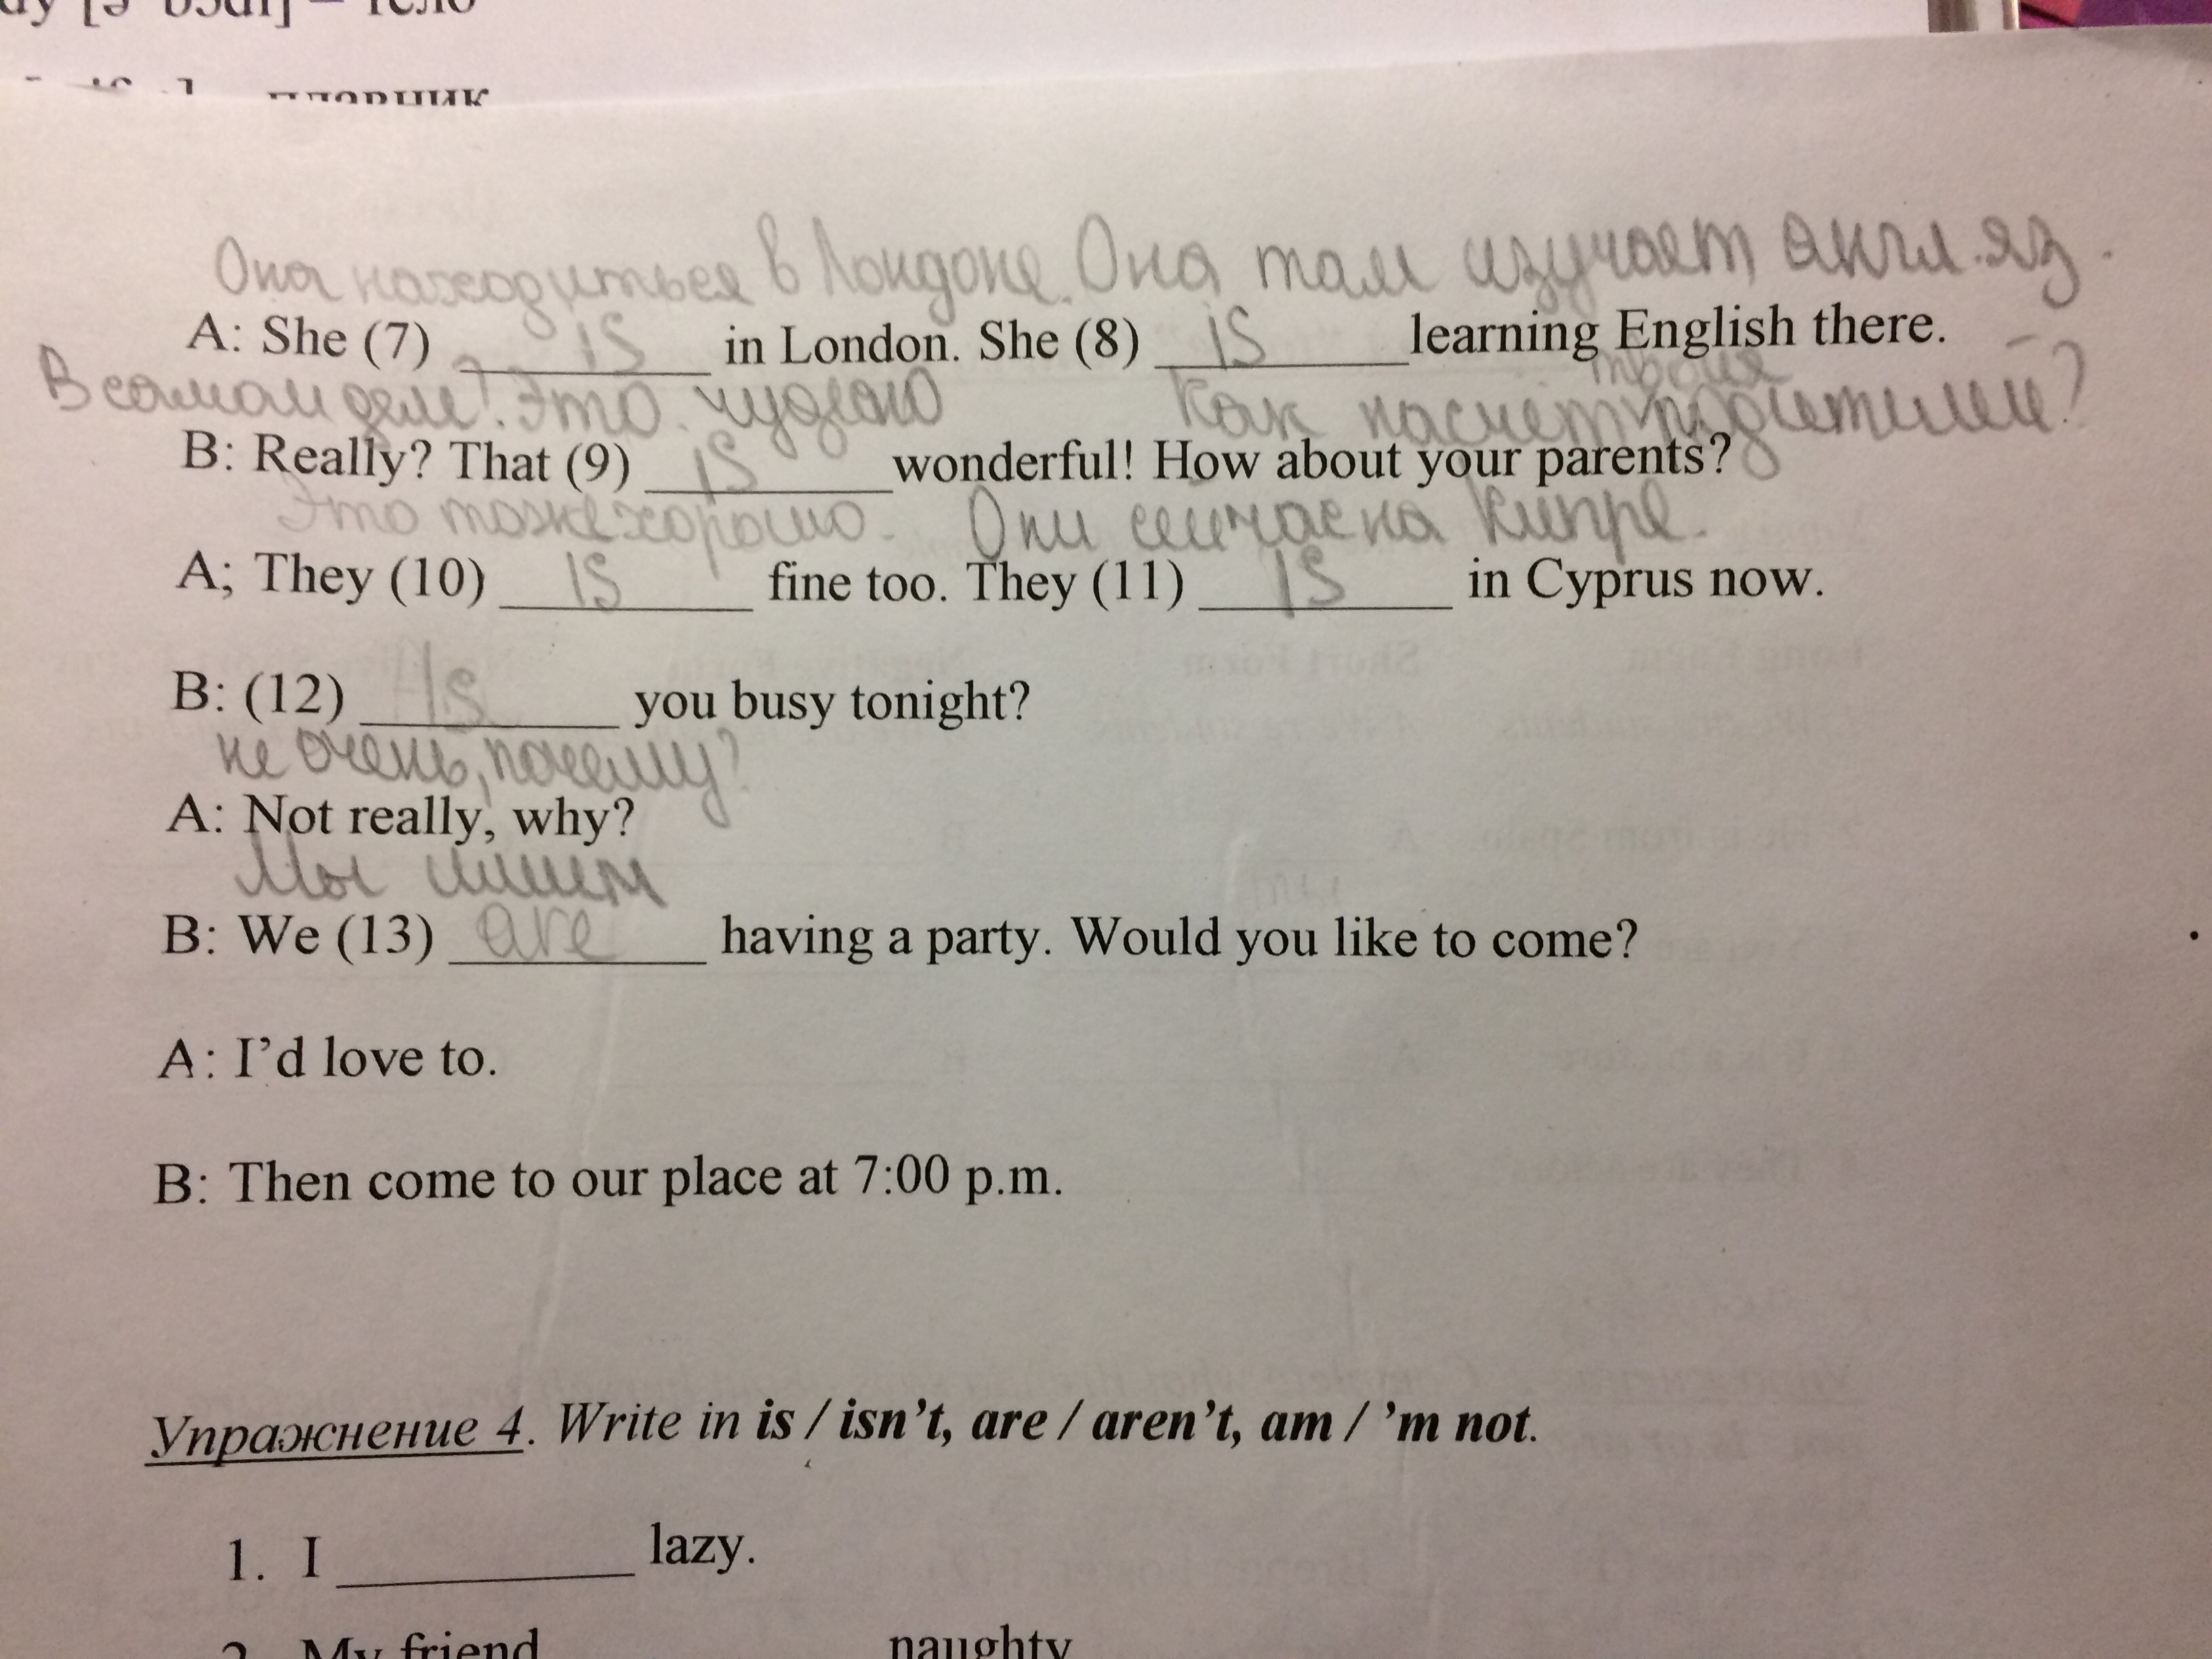 – тело
плавник
Она находиться в Лондоне. Она там изучает англ.яз.
A: She (7) is in London. She (8) is learning English there.
твоих
В самом деле! Это чудено Как насчёт родителей?
B: Really? That (9) is wonderful! How about your parents?
Это тоже хорошо. Они сейчас на Кипре.
A; They (10) is fine too. They (11) is in Cyprus now.
B: (12) Is you busy tonight?
не очень, почему?
A: Not really, why?
Мы имеем
B: We (13) are having a party. Would you like to come?
A: I’d love to.
B: Then come to our place at 7:00 p.m.
Упражнение 4. Write in is / isn’t, are / aren’t, am / ’m not.
1. I lazy.
2. My friend naughty